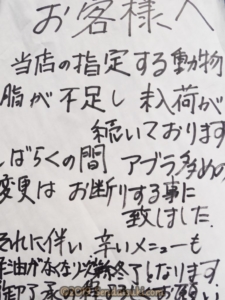 お客様へ
当店の指定する動物
脂が不足し 未入荷が
続いております
しばらくの間 アブラ多めの
変更は お断りする事に
致しました.
それに伴い 辛いメニューも
がなくなり次第終了となります